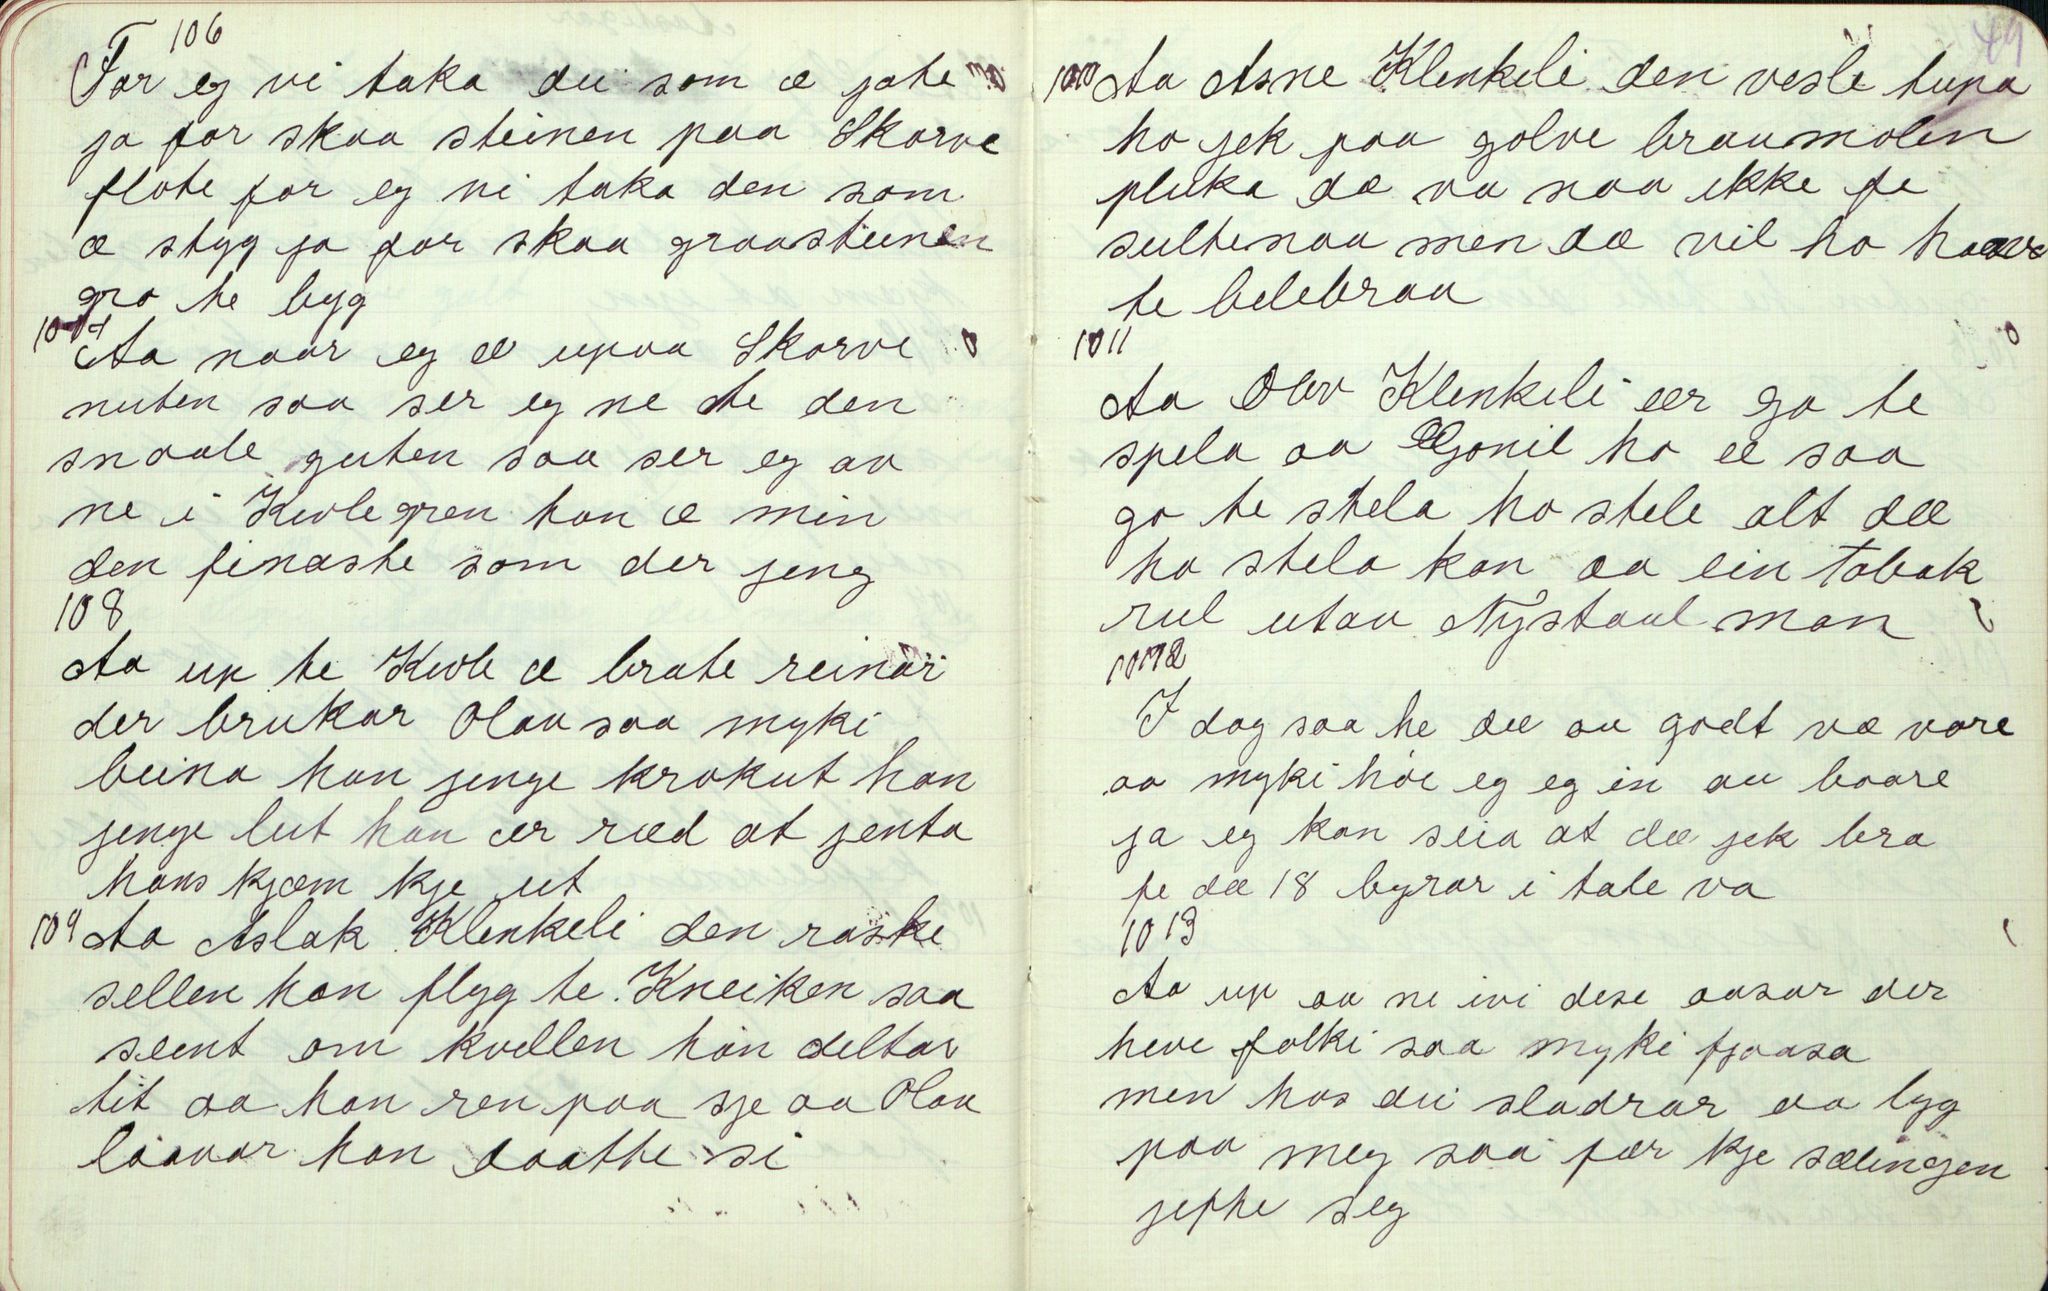 106
For eg vi taka dei som æ jate
ja for skaa steinen paa Skorve
flote for eg vi taka den som
æ styg ja for skaa graasteinen
gro te byg
107
Aa naar eg æ upaa Skorve
nuten saa ser eg ne te den
snaale guten saa ser eg av
ne i Kivlegren han æ min
den finaste som der jeng
108
Aa up te Kivle æ brate reinar
der brukar Olav saa myki
beina han jenge krokut han
jenge lut han ær ræd at jenta
hans kjæm kje ut
109 Aa Aslak Klenkeli den raske
sellen han flyg te Kneiken saa
seent om kvellen han deltar
tit aa han ren paa sje aa Olav
laavar han daatte si
49
1010 Aa Asne Klenkeli den vesle tupa
ho jek paa golve braumolen
pluka dæ va naa ikke fe
sultenaa men dæ vil ho have
te belebraa
1011
Aa Olav Klenkeli ær go te
spela aa Gonil ho æ saa
go te stela ho stele alt dæ
ho stela kan aa ein tobak
rul utav Nystaul man
1012
I dag saa he dæ au godt væ vore
aa myki höe eg eg in au baare
ja eg kan seia at dæ jek bra
fe dæ 18 byrar i tale va
1013
Aa up aa ne ivi dese aasar der
heve folki saa myki fjaasa
men hos dei sladrar aa lyg
paa meg saa fær kje sælingen
jefte seg